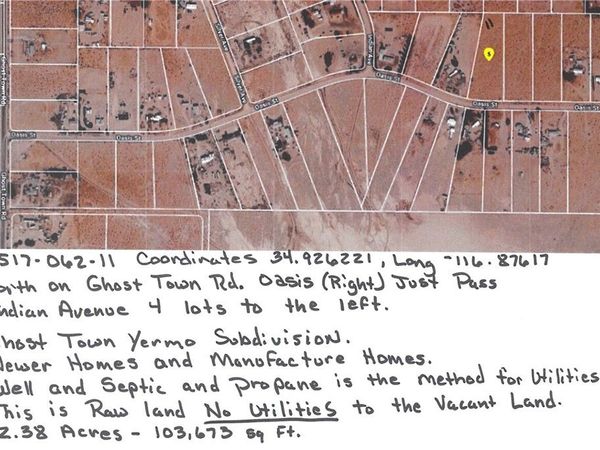 Ghost Town Rd
Silver Ave
Indian Ave
Oasis St
Oasis St
Oasis St
Oasis St
Oasis St
Ghost Town Rd
517-062-11 Coordinates 34.926221, Long -116.87617
orth on Ghost Town Rd. Oasis (Right) Just Pass
ndian Avenue 4 lots to the left.
host Town Yermo Subdivision.
Newer Homes and Manufacture Homes.
Well and Septic and Propane is the method for Utilities
This is Raw land No Utilities to the Vacant Land.
2.38 Acres - 103,673 sq Ft.